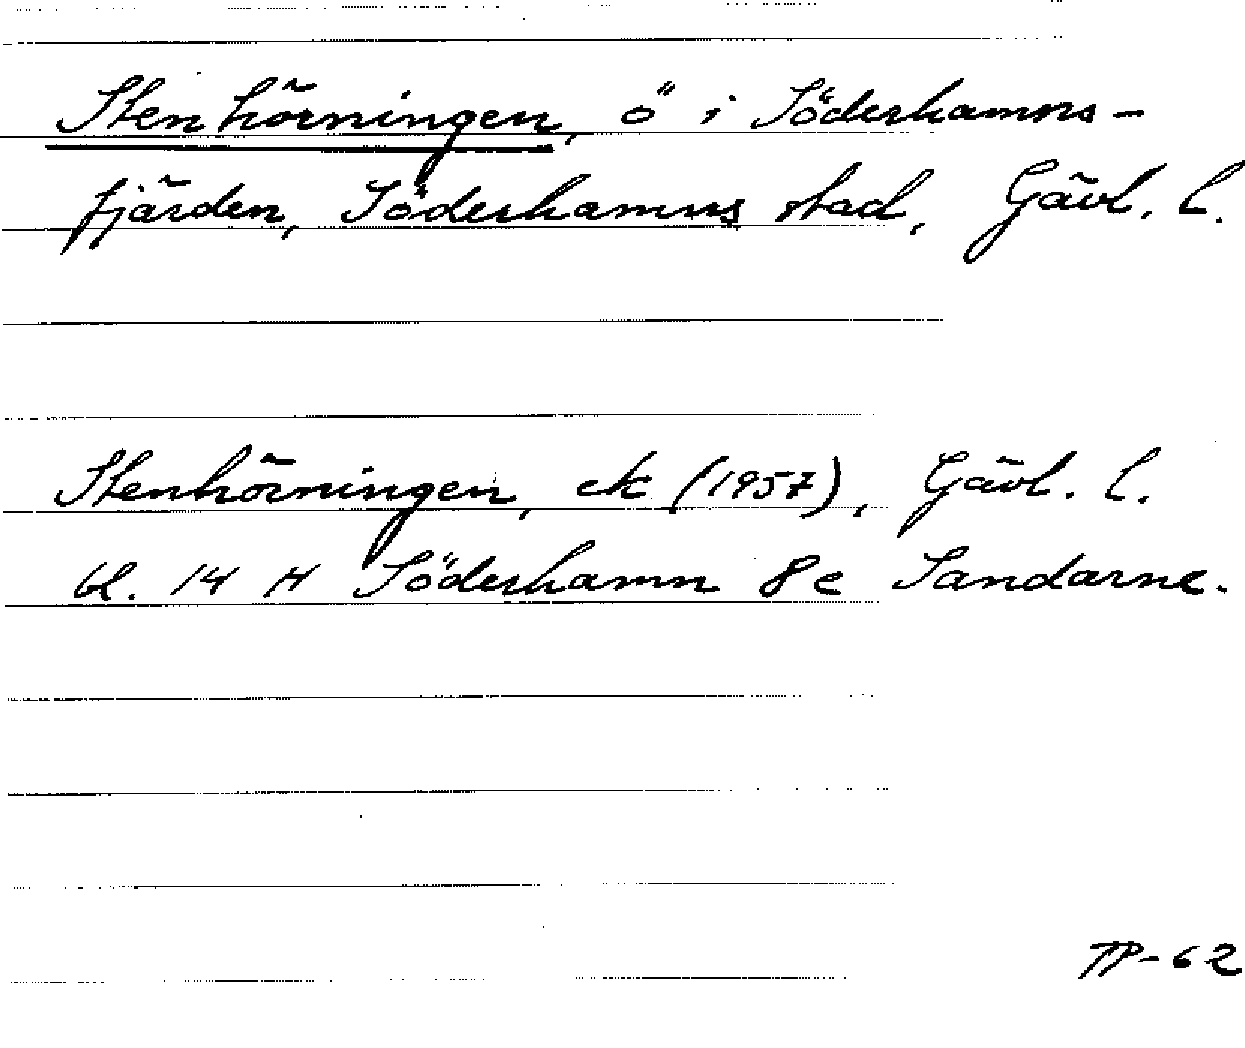 Stenhörningen, ö i Söderhamns-
fjärden, Söderhamns stad, Gävl. l.
Stenhörningen, ek (1957), Gävl. l.
bl. 14 H Söderhamn 8 c Sandarne.
TP-62